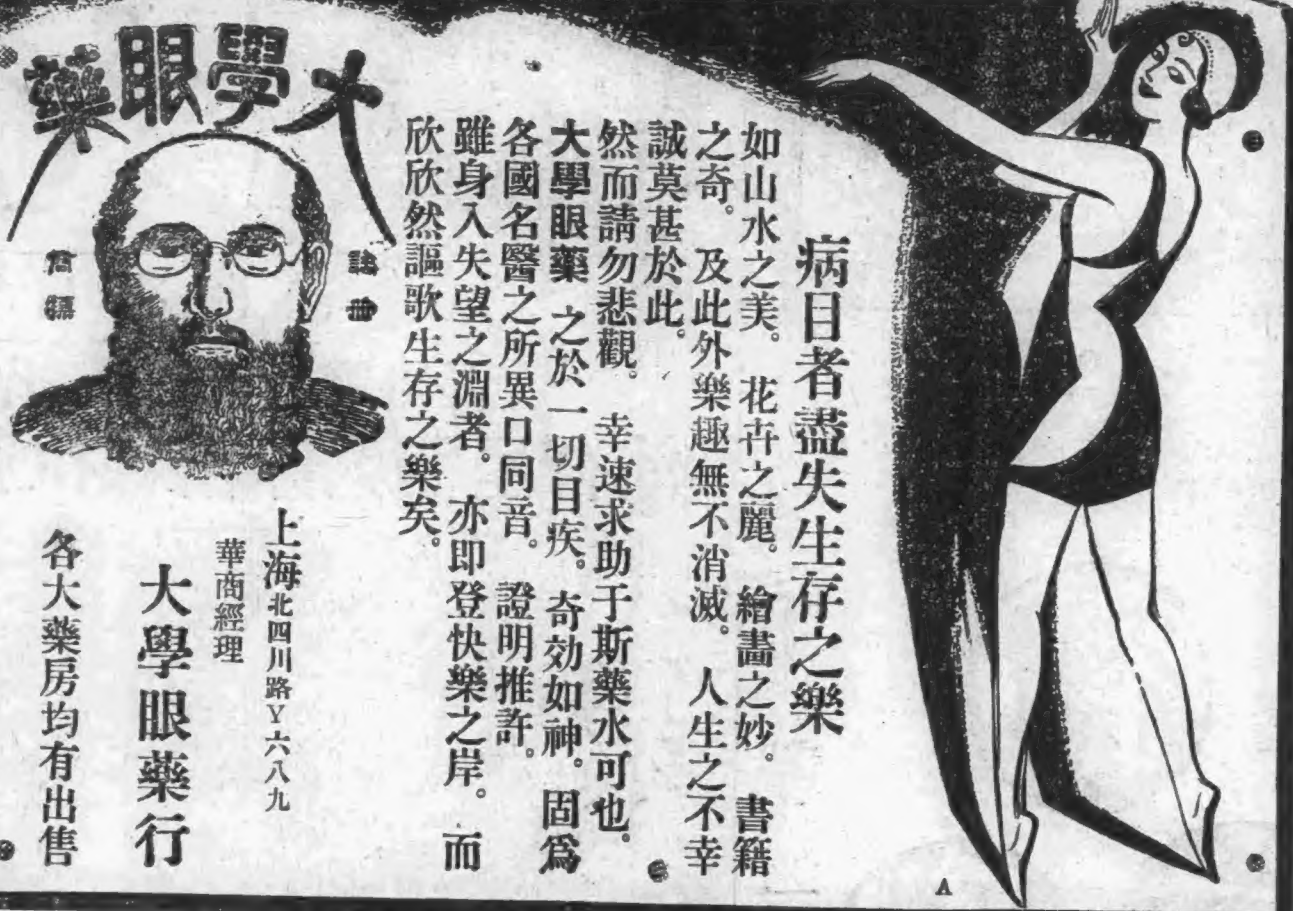 病目者盡失生存之樂
如山水之美。花卉之麗。繪畫之妙。書籍
之奇。及此外樂趣無不消滅。人生之不幸
誠莫甚於此。
然而請勿悲觀。幸速求助于斯藥水可也。
大學眼藥 之於一切目疾。奇効如神。固爲
各國名醫之所異口同音。證明推許。
雖身入失望之淵者。亦即登快樂之岸。而
欣欣然謳歌生存之樂矣。
大學眼藥
註冊
商標
上海北四川路Y六八九
華商經理
大學眼藥行
各大藥房均有出售
A